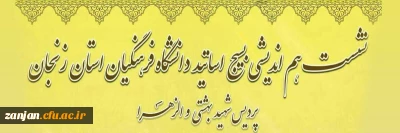 نشست هم اندیشی بسیج اساتید دانشگاه فرهنگیان استان زنجان
پردیس شهید بهشتی و الزهرا
zanjan.cfu.ac.ir